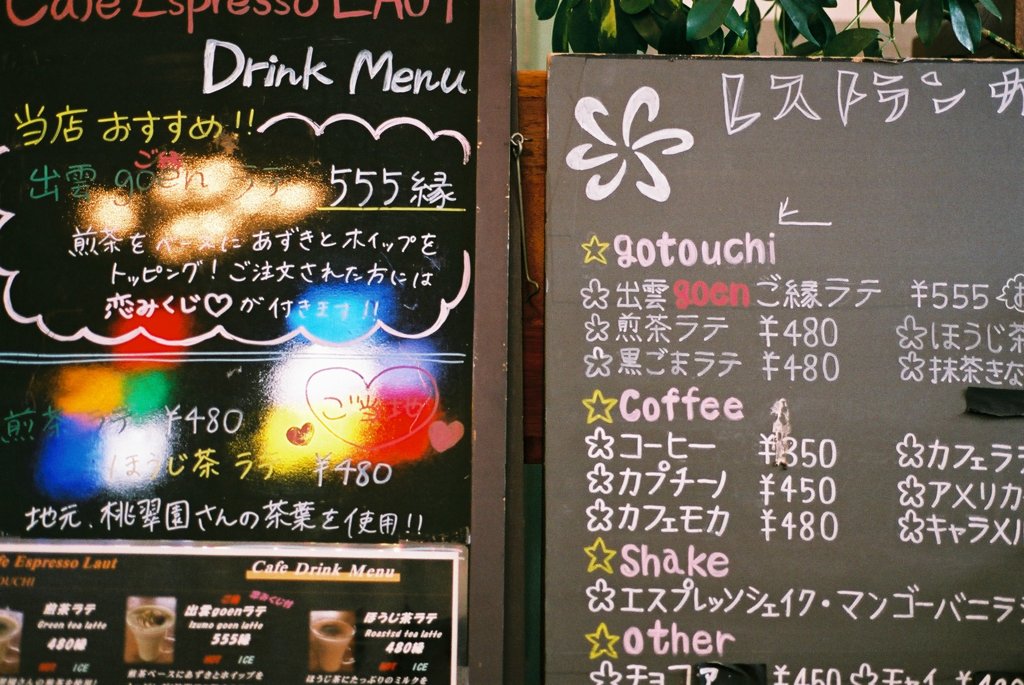 Cafe Espresso LAUT
Drink Menu
当店 おすすめ!!
ご縁
出雲 goen ラテ 555縁
煎茶をベースにあずきとホイップを
トッピング!ご注文された方には
恋みくじ♡が付きます!!
煎茶 ラテ ¥480
ご当地
ほうじ茶 ラテ ¥480
地元、桃翠園さんの茶葉を使用!!
Cafe Drink Menu
煎茶ラテ
Green tea latte
480縁
HOT ICE
出雲goenラテ
Izumo goen latte
555縁
HOT ICE
煎茶ベースにあずきとホイップを
ほうじ茶ラテ
Roasted tea latte
480縁
HOT ICE
ほうじ茶にたっぷりのミルクを
レストラン
gotouchi
出雲goenご縁ラテ ¥555
煎茶ラテ ¥480 ほうじ茶
黒ごまラテ ¥480 抹茶きな
Coffee
コーヒー ¥350 カフェラテ
カプチーノ ¥450 アメリカ
カフェモカ ¥480 キャラメル
Shake
エスプレッソシェイク・マンゴーバニラ
other
チョコ ¥450 チャイ